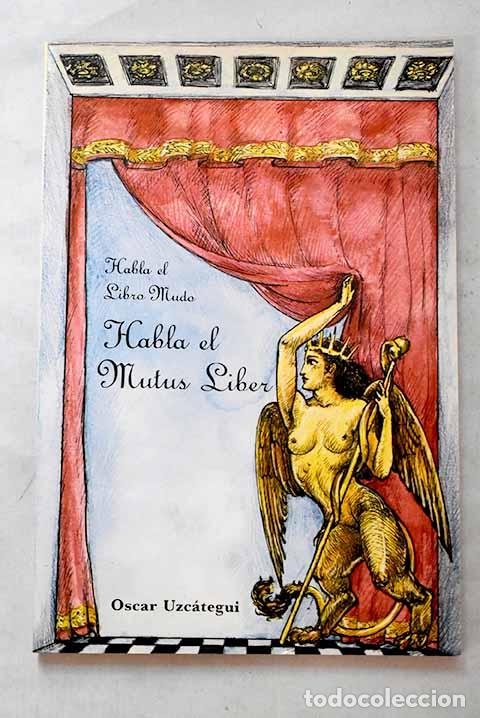 Habla el
Libro Mudo
Habla el
Mutus Liber
Oscar Uzcátegui
todocoleccion